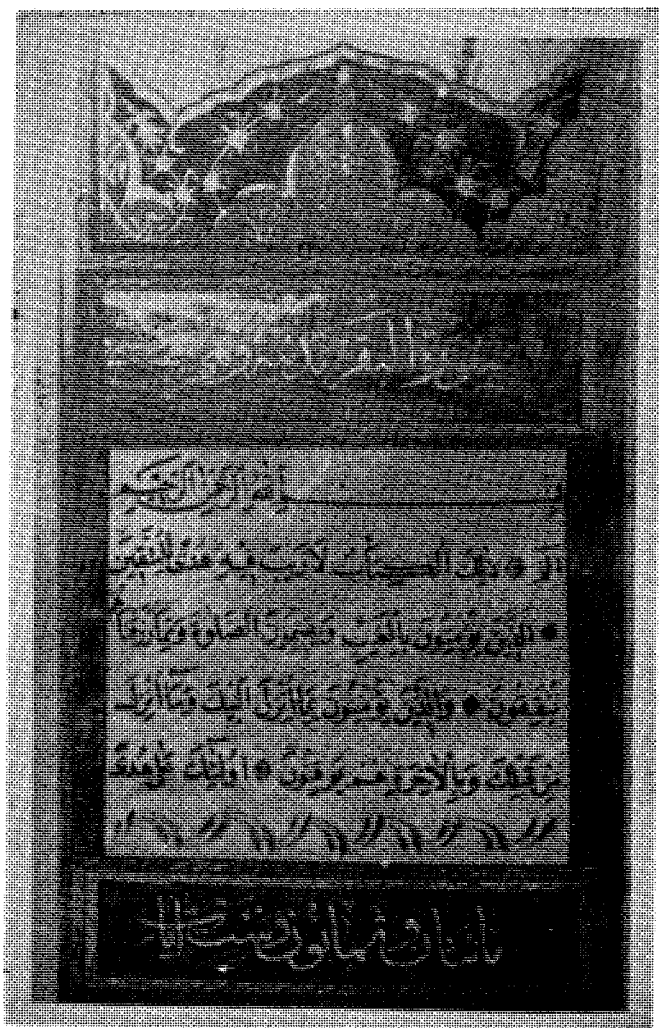 سورة البقرة
بِسْمِ اللَّهِ الرَّحْمَنِ الرَّحِيمِ
الٓمٓ ذَلِكَ الْكِتَابُ لَا رَيْبَ فِيهِ هُدًى لِلْمُتَّقِينَ
الَّذِينَ يُؤْمِنُونَ بِالْغَيْبِ وَيُقِيمُونَ الصَّلَوةَ وَمِمَّا رَزَقْنَاهُمْ
يُنْفِقُونَ وَالَّذِينَ يُؤْمِنُونَ بِمَا أُنْزِلَ إِلَيْكَ وَمَا أُنْزِلَ
مِنْ قَبْلِكَ وَبِالْآخِرَةِ هُمْ يُوقِنُونَ أُولَئِكَ عَلَى هُدًى